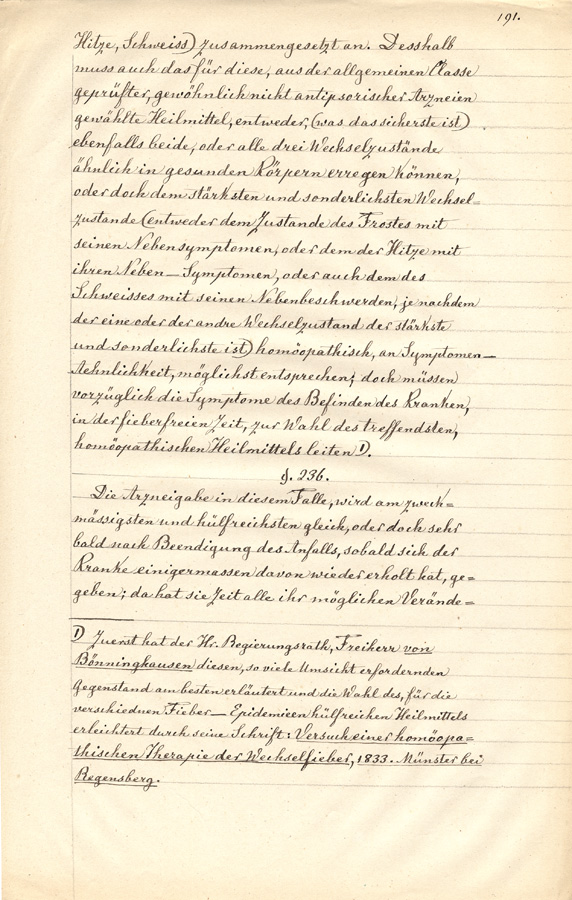 191.
Hitze, Schweiss) zusammengesetzt an. Desshalb
muss auch das für diese, aus der allgemeinen Classe
geprüfter, gewöhnlich nicht antipsorischer Arzneien
gewählte Heilmittel, entweder, (was das sicherste ist)
ebenfalls beide, oder alle drei Wechselzustände
ähnlich in gesunden Körpern erregen können,
oder doch dem stärksten und sonderlichsten Wechsel=
zustande (entweder dem Zustande des Frostes mit
seinen Nebensymptomen, oder dem der Hitze mit
ihren Neben-Symptomen, oder auch dem des
Schweisses mit seinen Nebenbeschwerden, je nachdem
der eine oder der andre Wechselzustand der stärkste
und sonderlichste ist) homöopathisch, an Symptomen-
Aehnlichkeit, möglichst entsprechen; doch müssen
vorzüglich die Symptome des Befinden des Kranken,
in der fieberfreien Zeit, zur Wahl des treffendsten,
homöopathischen Heilmittels leiten 1).
§. 236.
Die Arzneigabe in diesem Falle, wird am zweck=
mässigsten und hülfreichsten gleich, oder doch sehr
bald nach Beendigung des Anfalls, sobald sich der
Kranke einigermassen davon wieder erholt hat, ge=
geben; da hat sie Zeit alle ihr möglichen Verände=
1) Zuerst hat der Hr. Regierungsrath, Freiherr von
Bönninghausen diesen, so viele Umsicht erfordernden
Gegenstand am besten erläutert und die Wahl des, für die
verschiednen Fieber-Epidemieen hülfreichen Heilmittels
erleichtert durch seine Schrift: Versuch einer homöopa=
thischen Therapie der Wechselfieber, 1833. Münster bei
Regensberg.